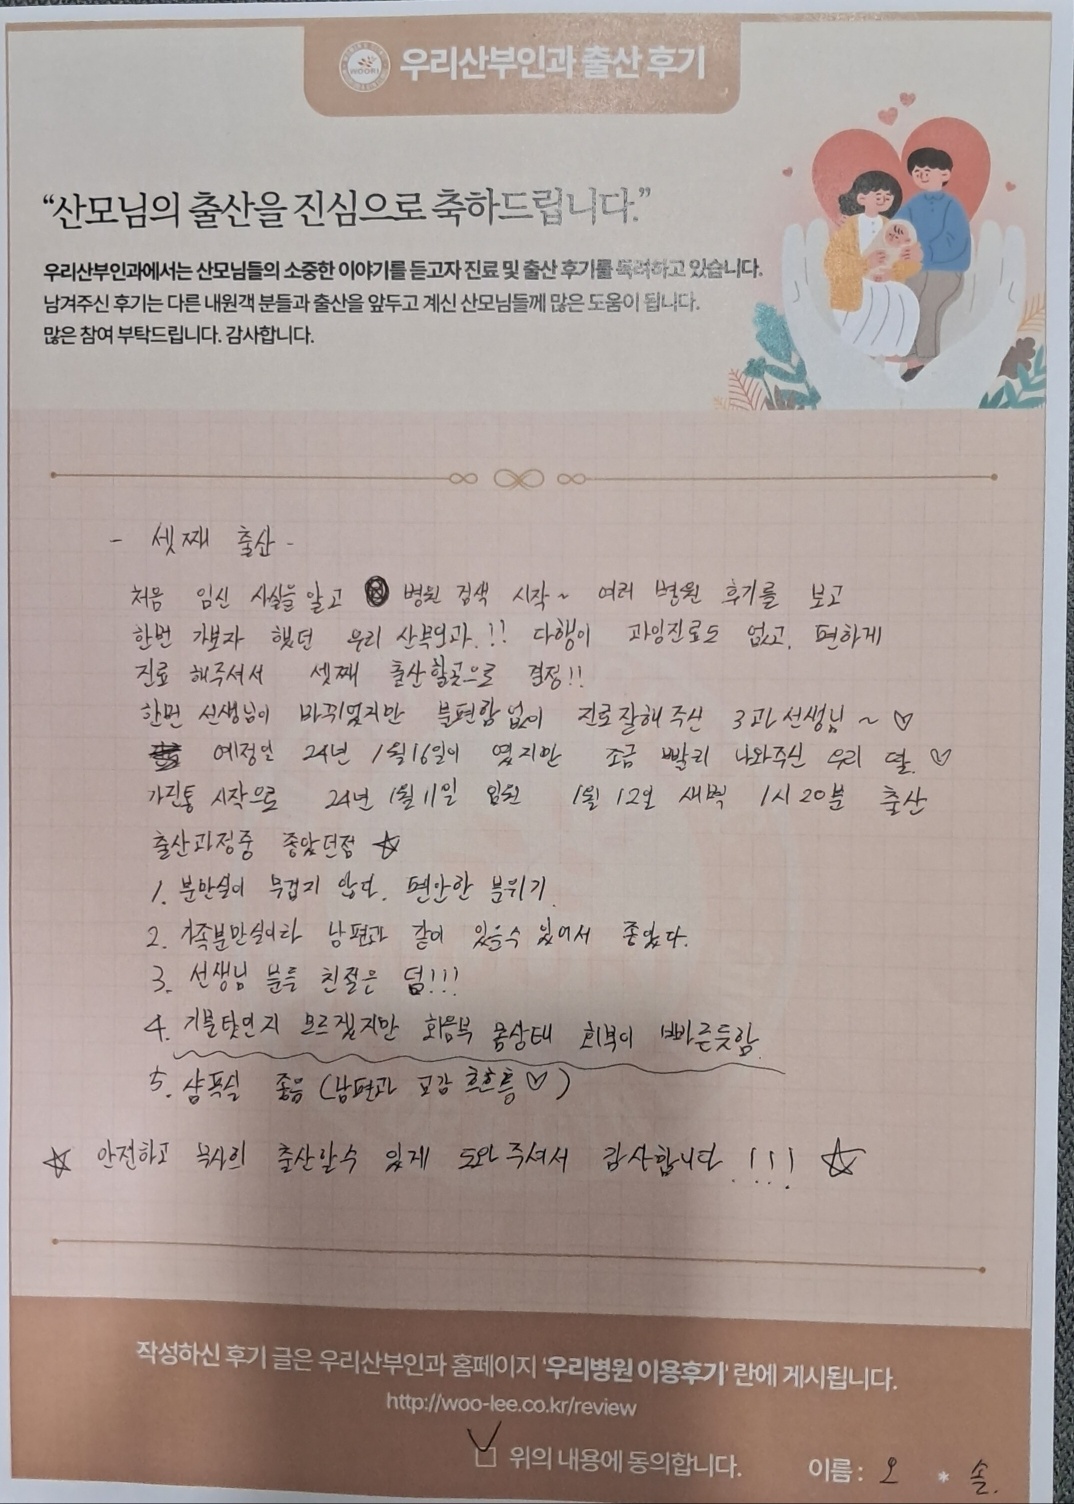 WOORI
우리산부인과 출산 후기
“산모님의 출산을 진심으로 축하드립니다.”
우리산부인과에서는 산모님들의 소중한 이야기를 듣고자 진료 및 출산 후기를 독려하고 있습니다.
남겨주신 후기는 다른 내원객 분들과 출산을 앞두고 계신 산모님들께 많은 도움이 됩니다.
많은 참여 부탁드립니다. 감사합니다.
- 셋째 출산 -
처음 임신 사실을 알고 병원 검색 시작~ 여러 병원 후기를 보고
한번 가보자 했던 우리 산부인과.!! 다행이 과잉진료도 없고, 편하게
진료 해주셔서 셋째 출산할곳으로 결정!!
한번 선생님이 바뀌였지만 불편함없이 진료잘해주신 3과선생님~♡
예정일 24년 1월16일이 였지만 조금 빨리 나와주신 우리 딸.♡
가진통 시작으로 24년 1월 11일 입원 1월 12일 새벽 1시 20분 출산
출산과정중 좋았던점 ☆
1. 분만실이 무겁지 않다. 편안한 분위기.
2. 가족분만실이라 남편과 같이 있을수 있어서 좋았다.
3. 선생님 분들 친절은 덤!!!
4. 기분탓인지 모르겠지만 회음부 몸상태 회복이 빠른듯함.
5. 샴푸실 좋음 (남편과 교감 흐흐흥♡)
☆ 안전하고 무사히 출산할수 있게 도와주셔서 감사합니다!!! ☆
작성하신 후기 글은 우리산부인과 홈페이지 '우리병원 이용후기' 란에 게시됩니다.
http://woo-lee.co.kr/review
위의 내용에 동의합니다. 이름 : 오 * 솔.